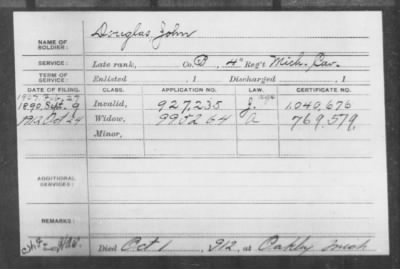 NAME OF SOLDIER: Douglas, John
SERVICE: Late rank, Co. B, 4" Reg't Mich. Cav.
TERM OF SERVICE: Enlisted , 1 Discharged , 1
DATE OF FILING. CLASS. APPLICATION NO. LAW. CERTIFICATE NO.
1907
1890, Sept. 9 Invalid, 927,235 J. age 1,040,676
1912 Oct 24 Widow, 99.52 64 a 769,579
Minor,
ADDITIONAL SERVICES:
REMARKS:
Died Oct 1 , 912, at Oakley Mich